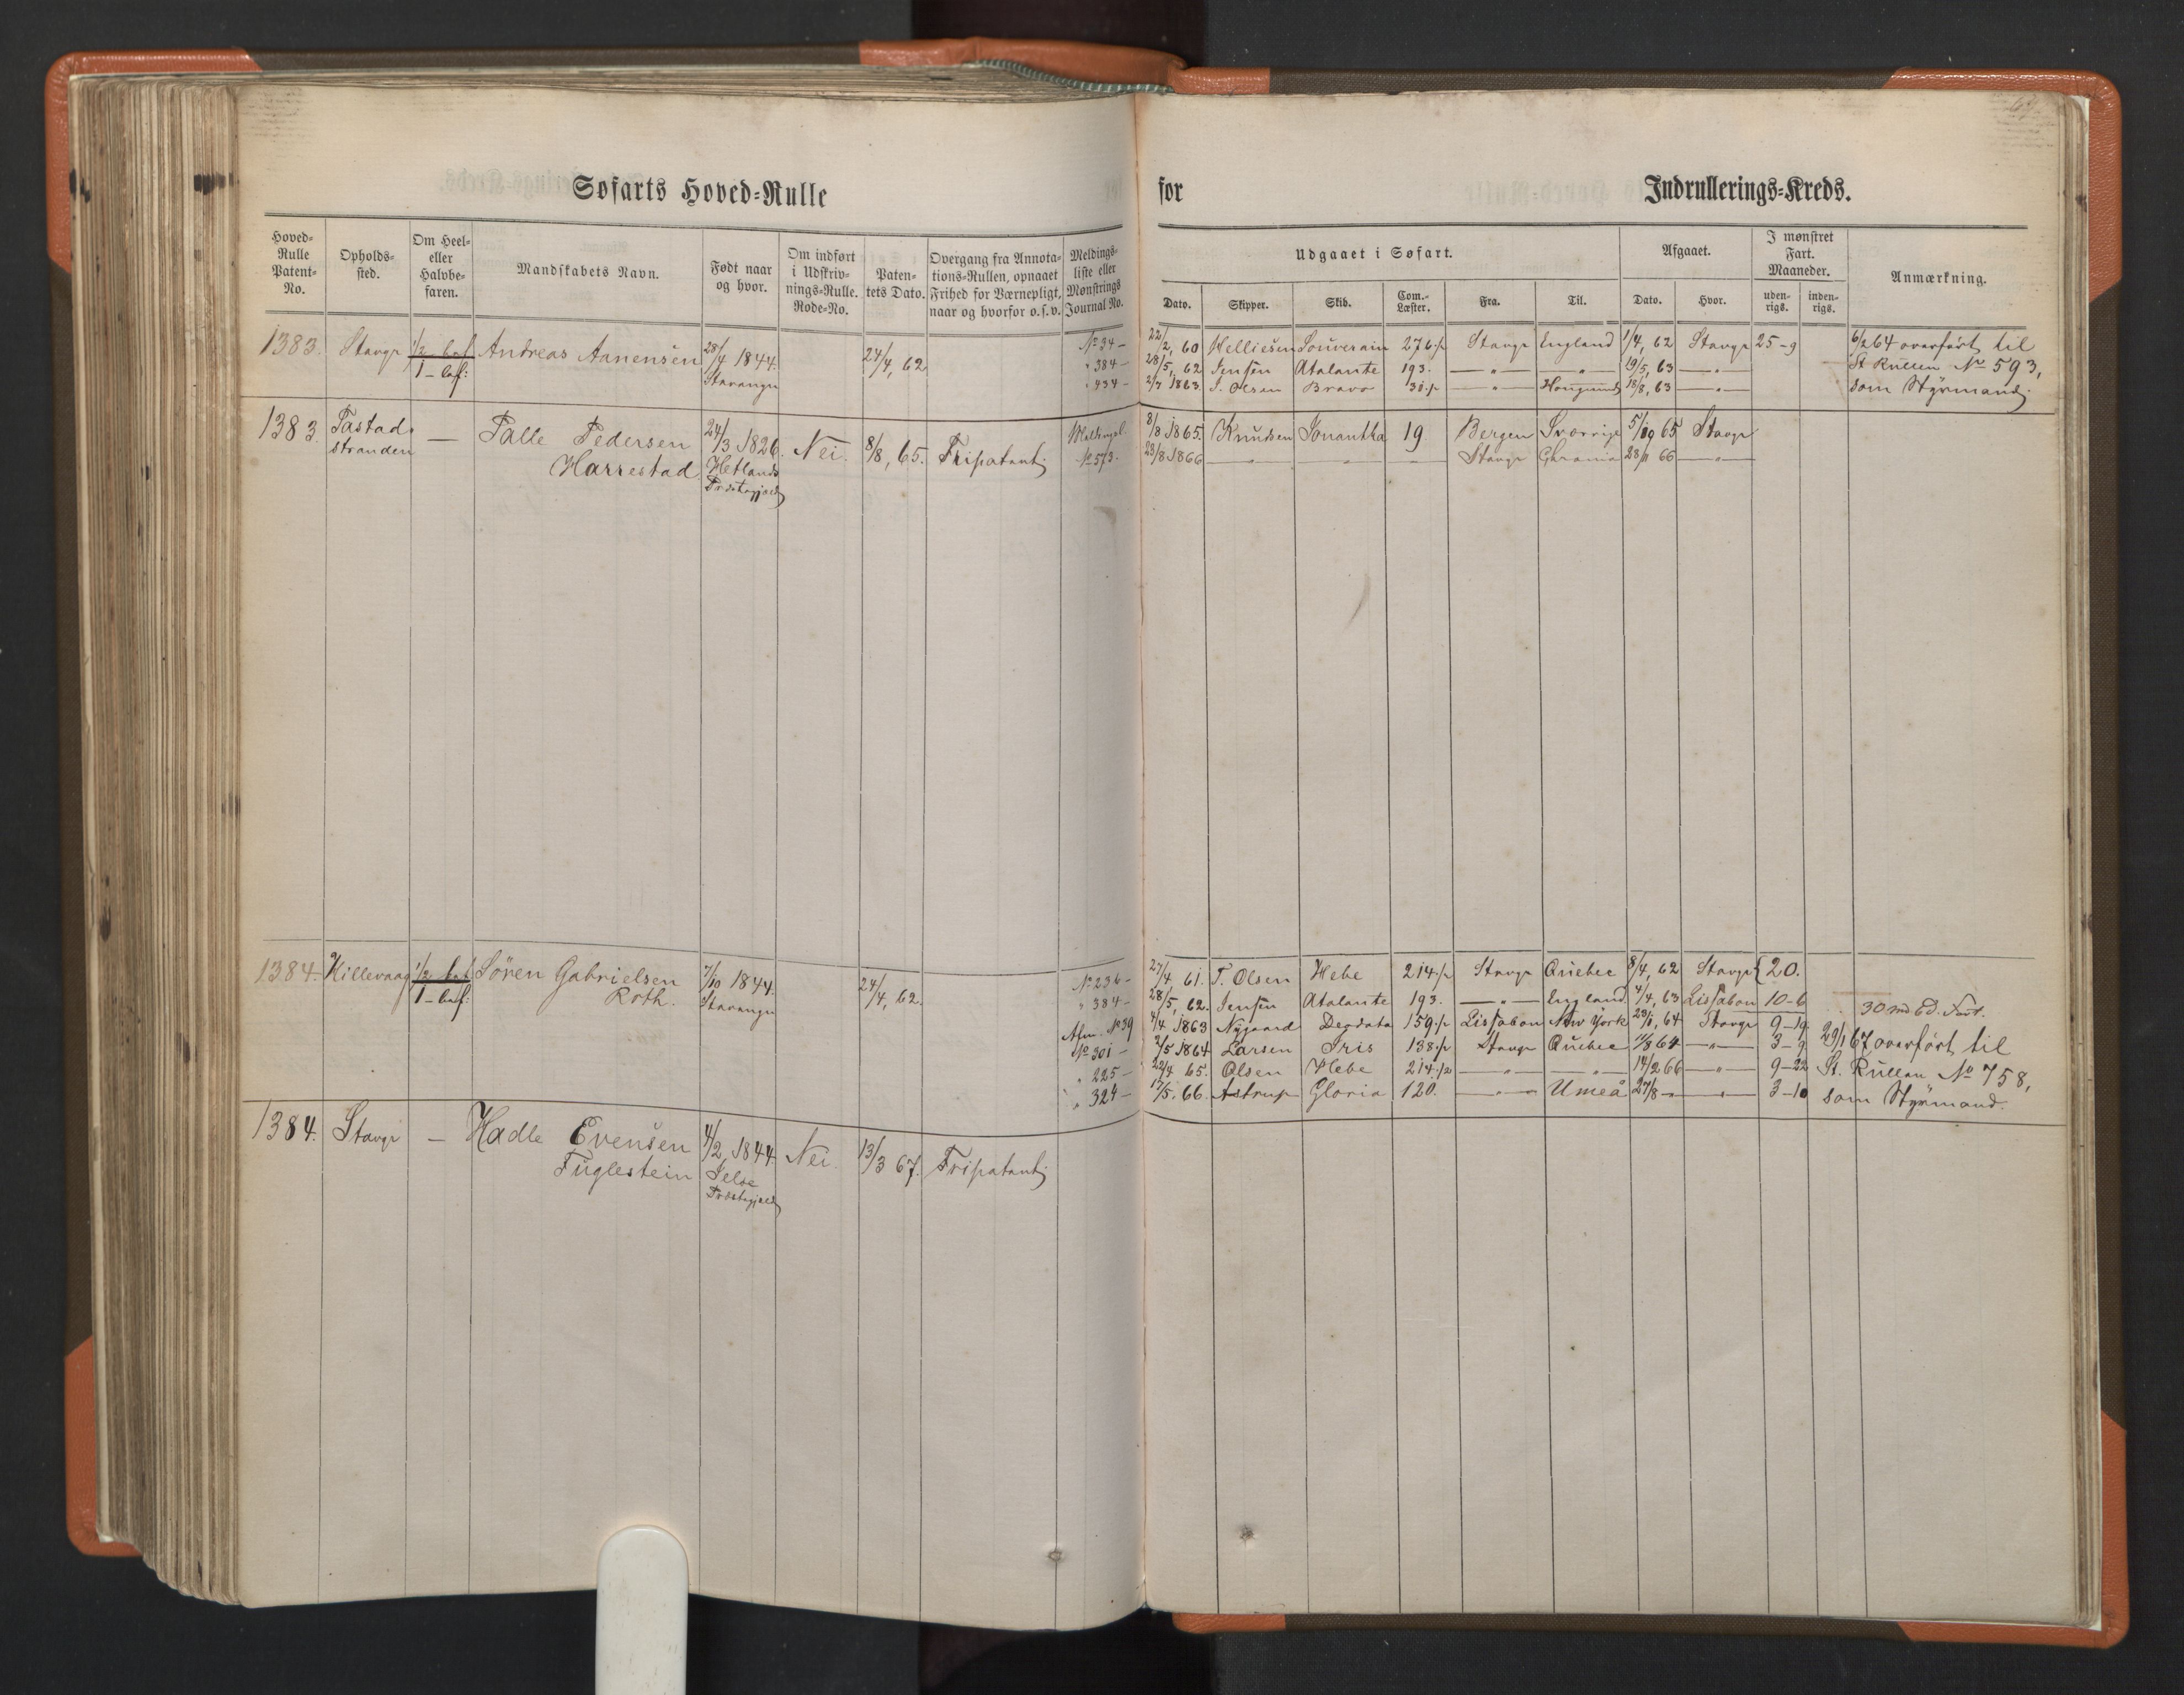 Søfarts Hoved-Rulle
for Indrullerings-Kreds.
Hoved-Rulle Patent-No.
Opholds-sted.
Om Heel- eller Halvbe-faren.
Mandskabets Navn.
Født naar og hvor.
Om indført i Udskriv-nings-Rulle. Rode-No.
Paten-tets Dato.
Overgang fra Annota-tions-Rullen, opnaaet Frihed for Værnepligt, naar og hvorfor o. s. v.
Meldings-liste eller Mønstrings Journal No.
Udgaaet i Søfart.
Afgaaet.
I mønstret Fart. Maaneder.
Anmærkning.
Dato. Skipper. Skib. Com.-Læster. Fra. Til. Dato. Hvor. uden-rigs. inden-rigs.
1383. Stavgr 1/2 bef Andreas Aanensen 28/4 1844. 24/4, 62. No 34 - 22/2, 60 Helliesen Souverain 276 Stavgr England 1/4, 62 Stavgr 25-9 6/2 64 overført til
1 - bef: Stavanger " 384 - 28/5, 62 Jensen Atalante 193. —"— —"— 19/5, 63 —"— St Rullen No 593,
" 434 - 2/7 1863. J. Olsen Bravo 30 —"— 18/8, 63 —"— som Styrmand.
1383. Tastad — Palle Pedersen 24/3 1826. Nei. 8/8, 65. Fripatent. 8/8 1865. Knudsen Jonantha 19 Bergen Sverrige 5/10 65 Stavgr
stranden Harrestad Hetlands No 573. 23/8 1866 —"— Stavgr 28/11 66 —"—
Præstegjeld
1384. Hillevaag 1/2 bef Sören Gabrielsen 7/10 1844. 24/4, 62. No 236 - 27/4, 61. T. Olsen Hebe 214 Stavgr Quebec 8/4, 62 Stavgr 20.
1 - bef: Roth. Stavanger " 384 - 28/5, 62. Jensen Atalante 193. —"— England 4/4, 63 Lissabon 10-6 30 md 6 d. Fart.
No 39 4/4 1863 Nygaard Deodata 159 Lissabon New York 23/1, 64 Stavgr 9-19 29/1 67 overført til
No 301 - 2/5 1864 Larsen Iris 138 Stavgr Quebec 64 —"— 3-9 St. Rullen No 758,
" 225 - 22/4 65. Olsen Hebe 214 —"— —"— 14/2 66 —"— 9-22 som Styrmand.
" 324 - 17/5. 66. Astrup Gloria 120. —"— Umeå 27/8 —"— 3-10
1384. Stavgr — Hadle Evensen 4/2, 1844. Nei. 13/3 67. Fripatent.
Fuglestein Jelse
Præstegjeld